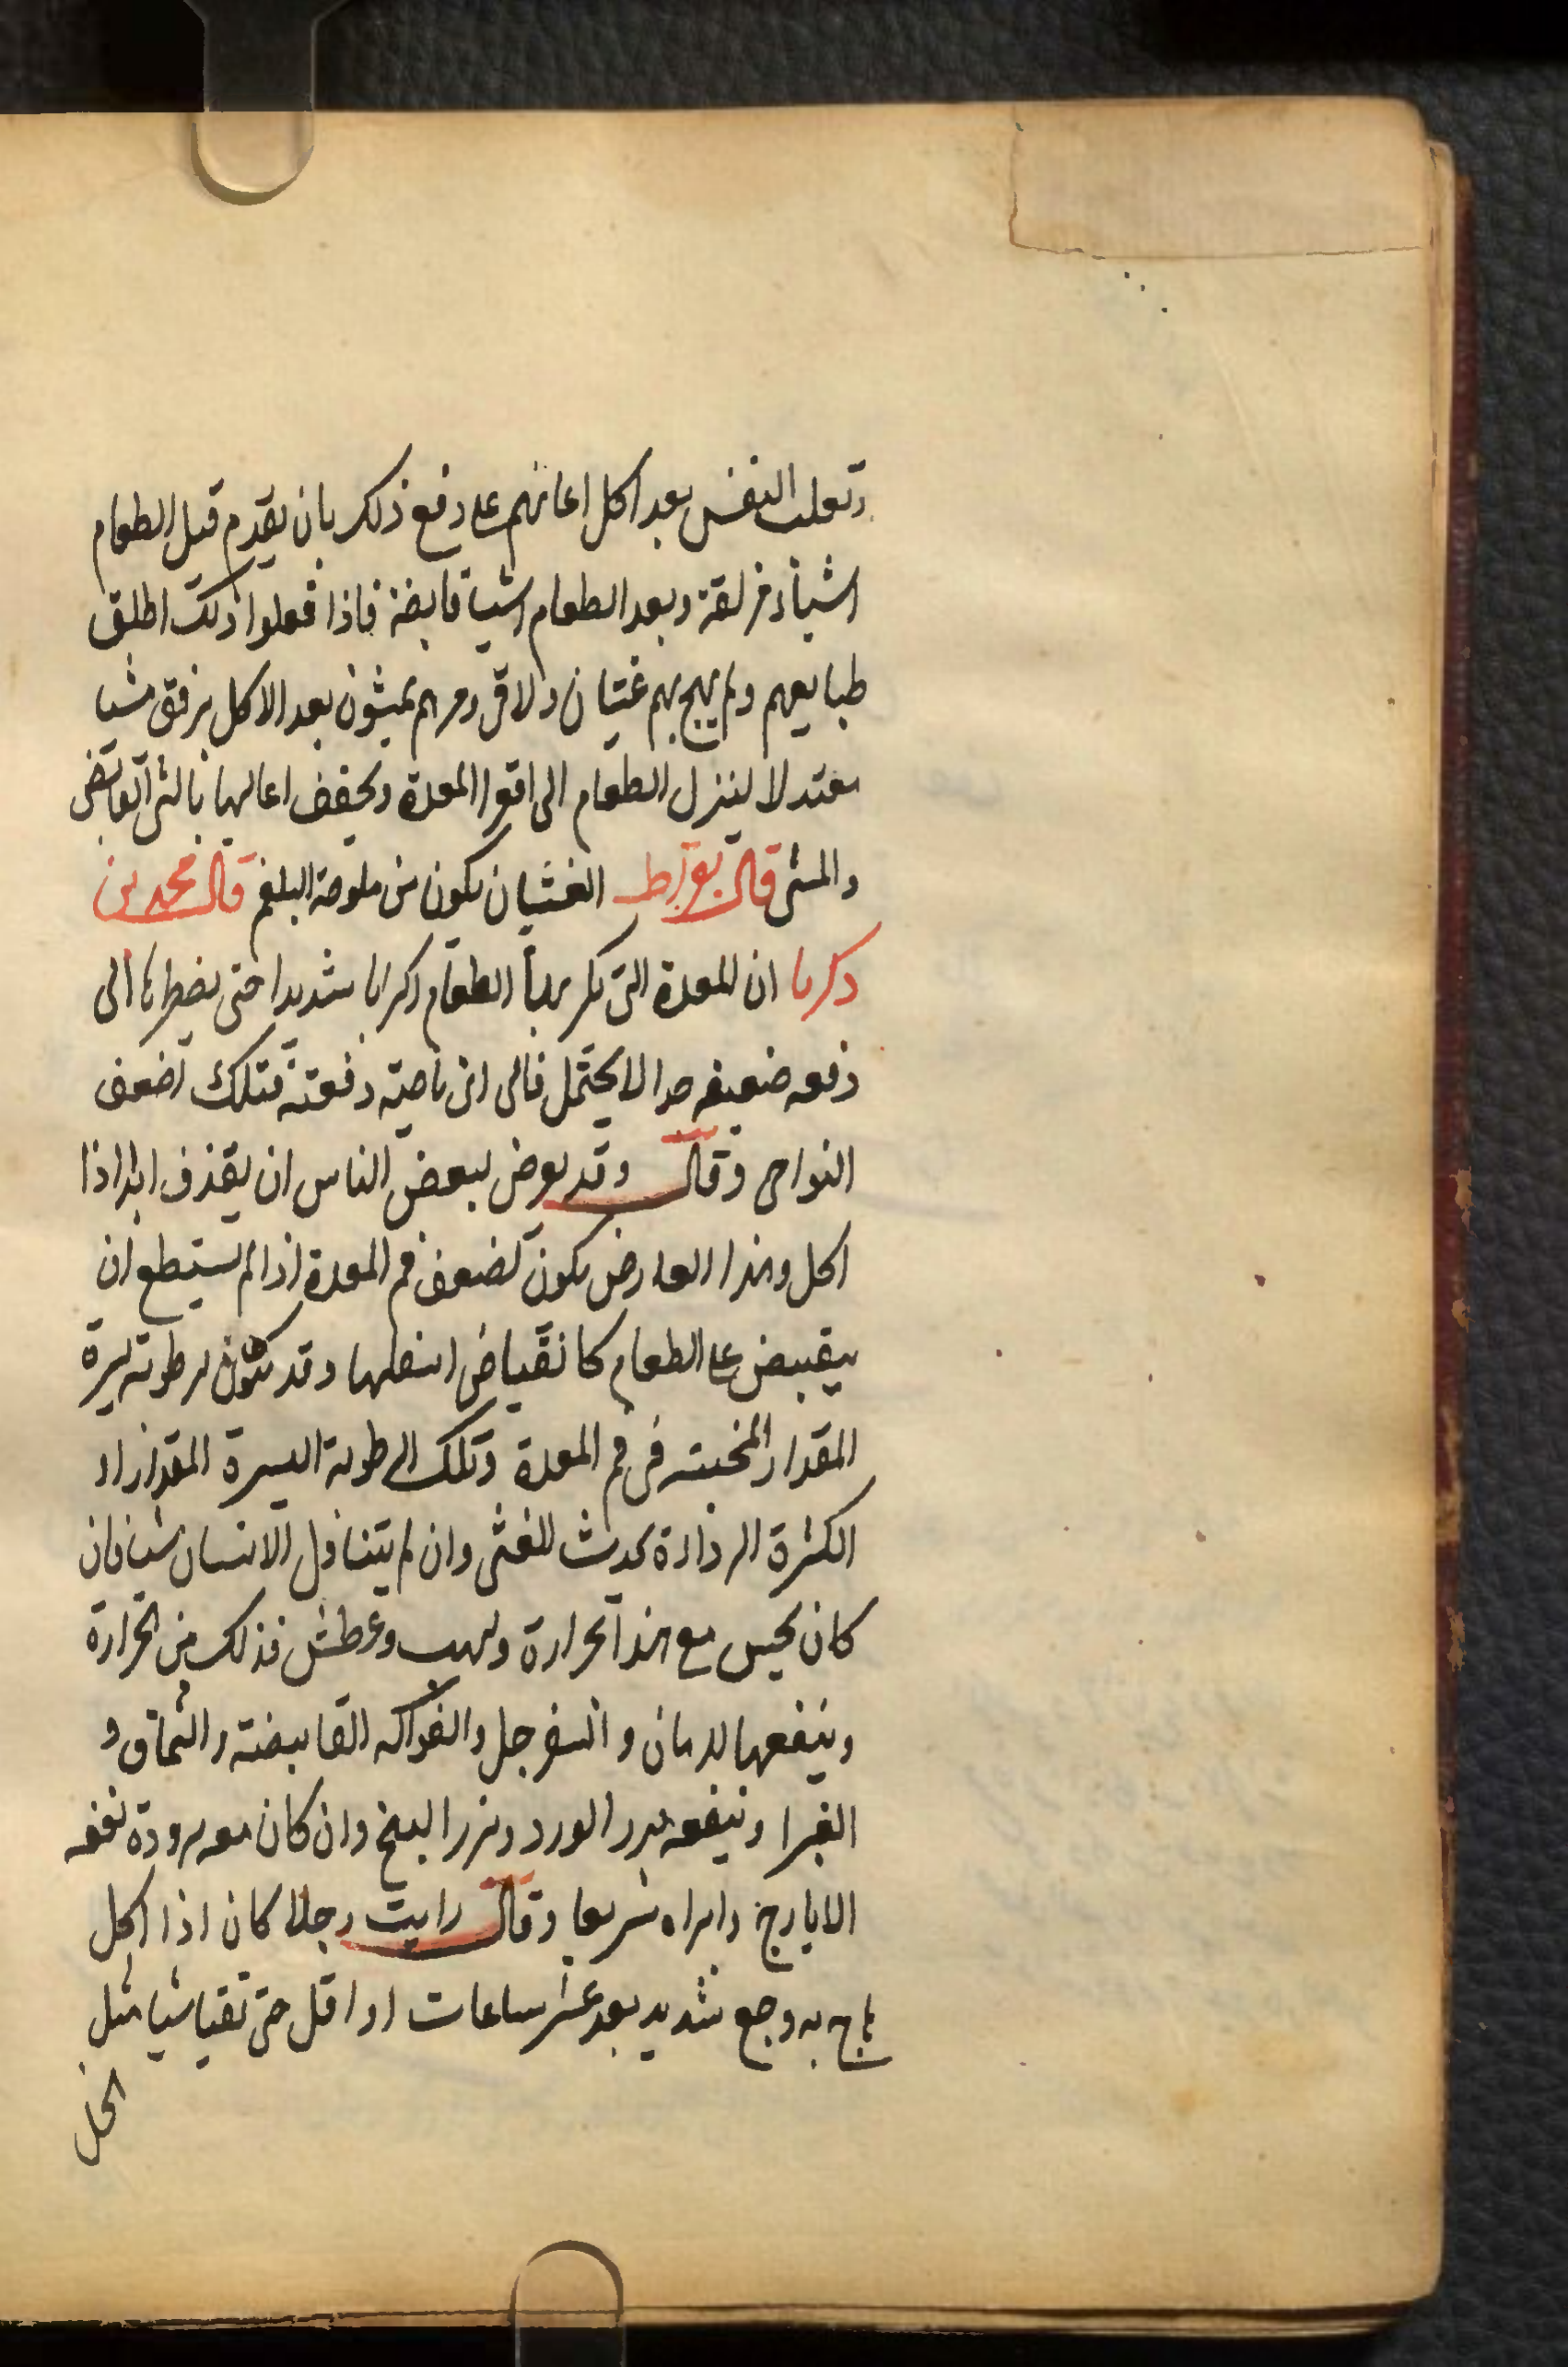 وتعلب النفس بعد اكل اعانهم على دفع ذلك بان يقدم قبل الطعام
اشياء مزلقة وبعد الطعام اشياء قابضة فاذا فعلوا ذلك اطلق
طبايعهم ولم يهج بهم غثيان ولا قى ومرهم يمشون بعد الاكل برفق مشيا
معتدلا لينزل الطعام الى اقوا المعدة ويخفف اعاليها بالشى القابض
والمشى قال بقراط الغثيان يكون من ملوحة البلغم قال محمد بن
زكريا ان المعدة التى تكرب بها الطعام اكرابا شديدا حتى يضطرها الى
دفعه ضعيفه جدا لا يحتمل فالى اى ناحيته دفعته فتلك اضعف
النواحى وقال وقد يعرض لبعض الناس ان يقذف ابدا اذا
اكل وهذا العارض يكون لضعف فم المعدة اذا لم يستطع ان
يقبض على الطعام كانقباض اسفلها وقد يكون لرطوبة يسيرة
المقدار فى فم المعدة وتلك الرطوبة اليسيرة المقدار
الكثيرة الرداءة يحدث للغثى وان لم يتناول الانسان شيا فان
كان يحس مع هذا بحرارة ولهيب وعطش فذلك من الحرارة
وينفعها الرمان والسفرجل والفواكه القابضة والسماق و
الغبرا وينفعه بزر الورد وبزر البنج وان كان معه برودة نفعه
الايارج وابراه سريعا وقال رايت رجلا كان اذا اكل
هاج به وجع شديد بعد عشر ساعات او اقل حتى تقيا شيا مثل
الخل